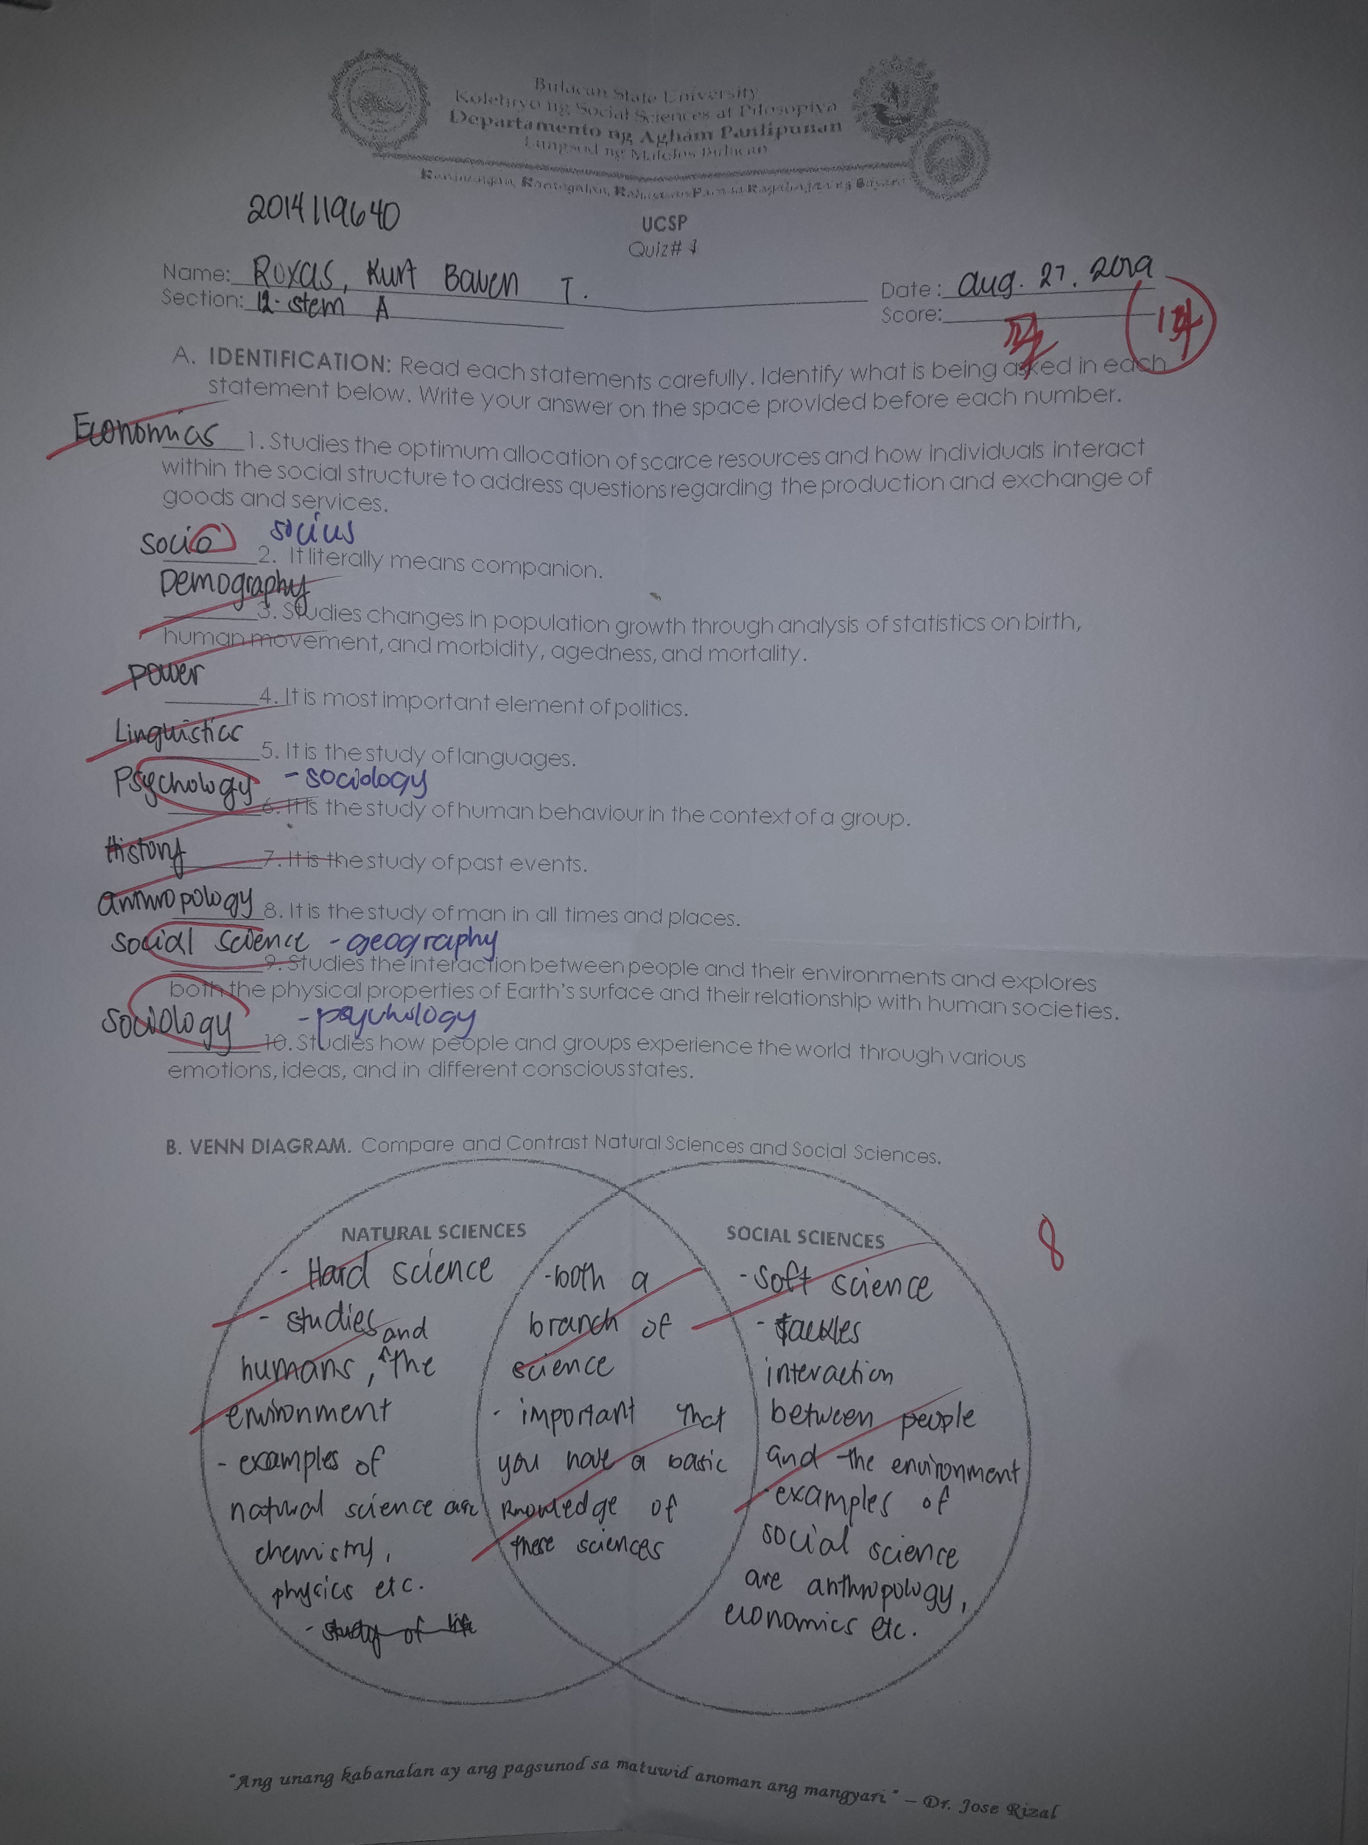 Bulacan State University
Kolehiyo ng Social Sciences at Pilosopiya
Departamento ng Agham Panlipunan
Lungsod ng Malolos Bulacan
2014119640
UCSP
Quiz# 1
Name: Roxas, Kurt Baven T.
Date: Aug. 27, 2019
Section: 12-stem A
Score:
A. IDENTIFICATION: Read each statements carefully. Identify what is being asked in each
statement below. Write your answer on the space provided before each number.
Economics 1. Studies the optimum allocation of scarce resources and how individuals interact
within the social structure to address questions regarding the production and exchange of
goods and services.
socio socius
2. It literally means companion.
Demography
3. Studies changes in population growth through analysis of statistics on birth,
human movement, and morbidity, agedness, and mortality.
power
4. It is most important element of politics.
Linguistics
5. It is the study of languages.
Psychology - sociology
6. It is the study of human behaviour in the context of a group.
History
7. It is the study of past events.
anthropology 8. It is the study of man in all times and places.
social science - geography
9. Studies the interaction between people and their environments and explores
both the physical properties of Earth's surface and their relationship with human societies.
Sociology - psychology
10. Studies how people and groups experience the world through various
emotions, ideas, and in different conscious states.
B. VENN DIAGRAM. Compare and Contrast Natural Sciences and Social Sciences.
8
NATURAL SCIENCES
- Hard science
- studies
humans, and the
environment
- examples of
natural science are
chemistry,
physics etc.
- study of life
- both a
branch of
science
- important that
you have a basic
knowledge of
these sciences
SOCIAL SCIENCES
- soft science
- tackles
interaction
between people
and the environment
- examples of
social science
are anthropology,
economics etc.
"Ang unang kabanalan ay ang pagsunod sa matuwid anoman ang mangyari." – Dr. Jose Rizal